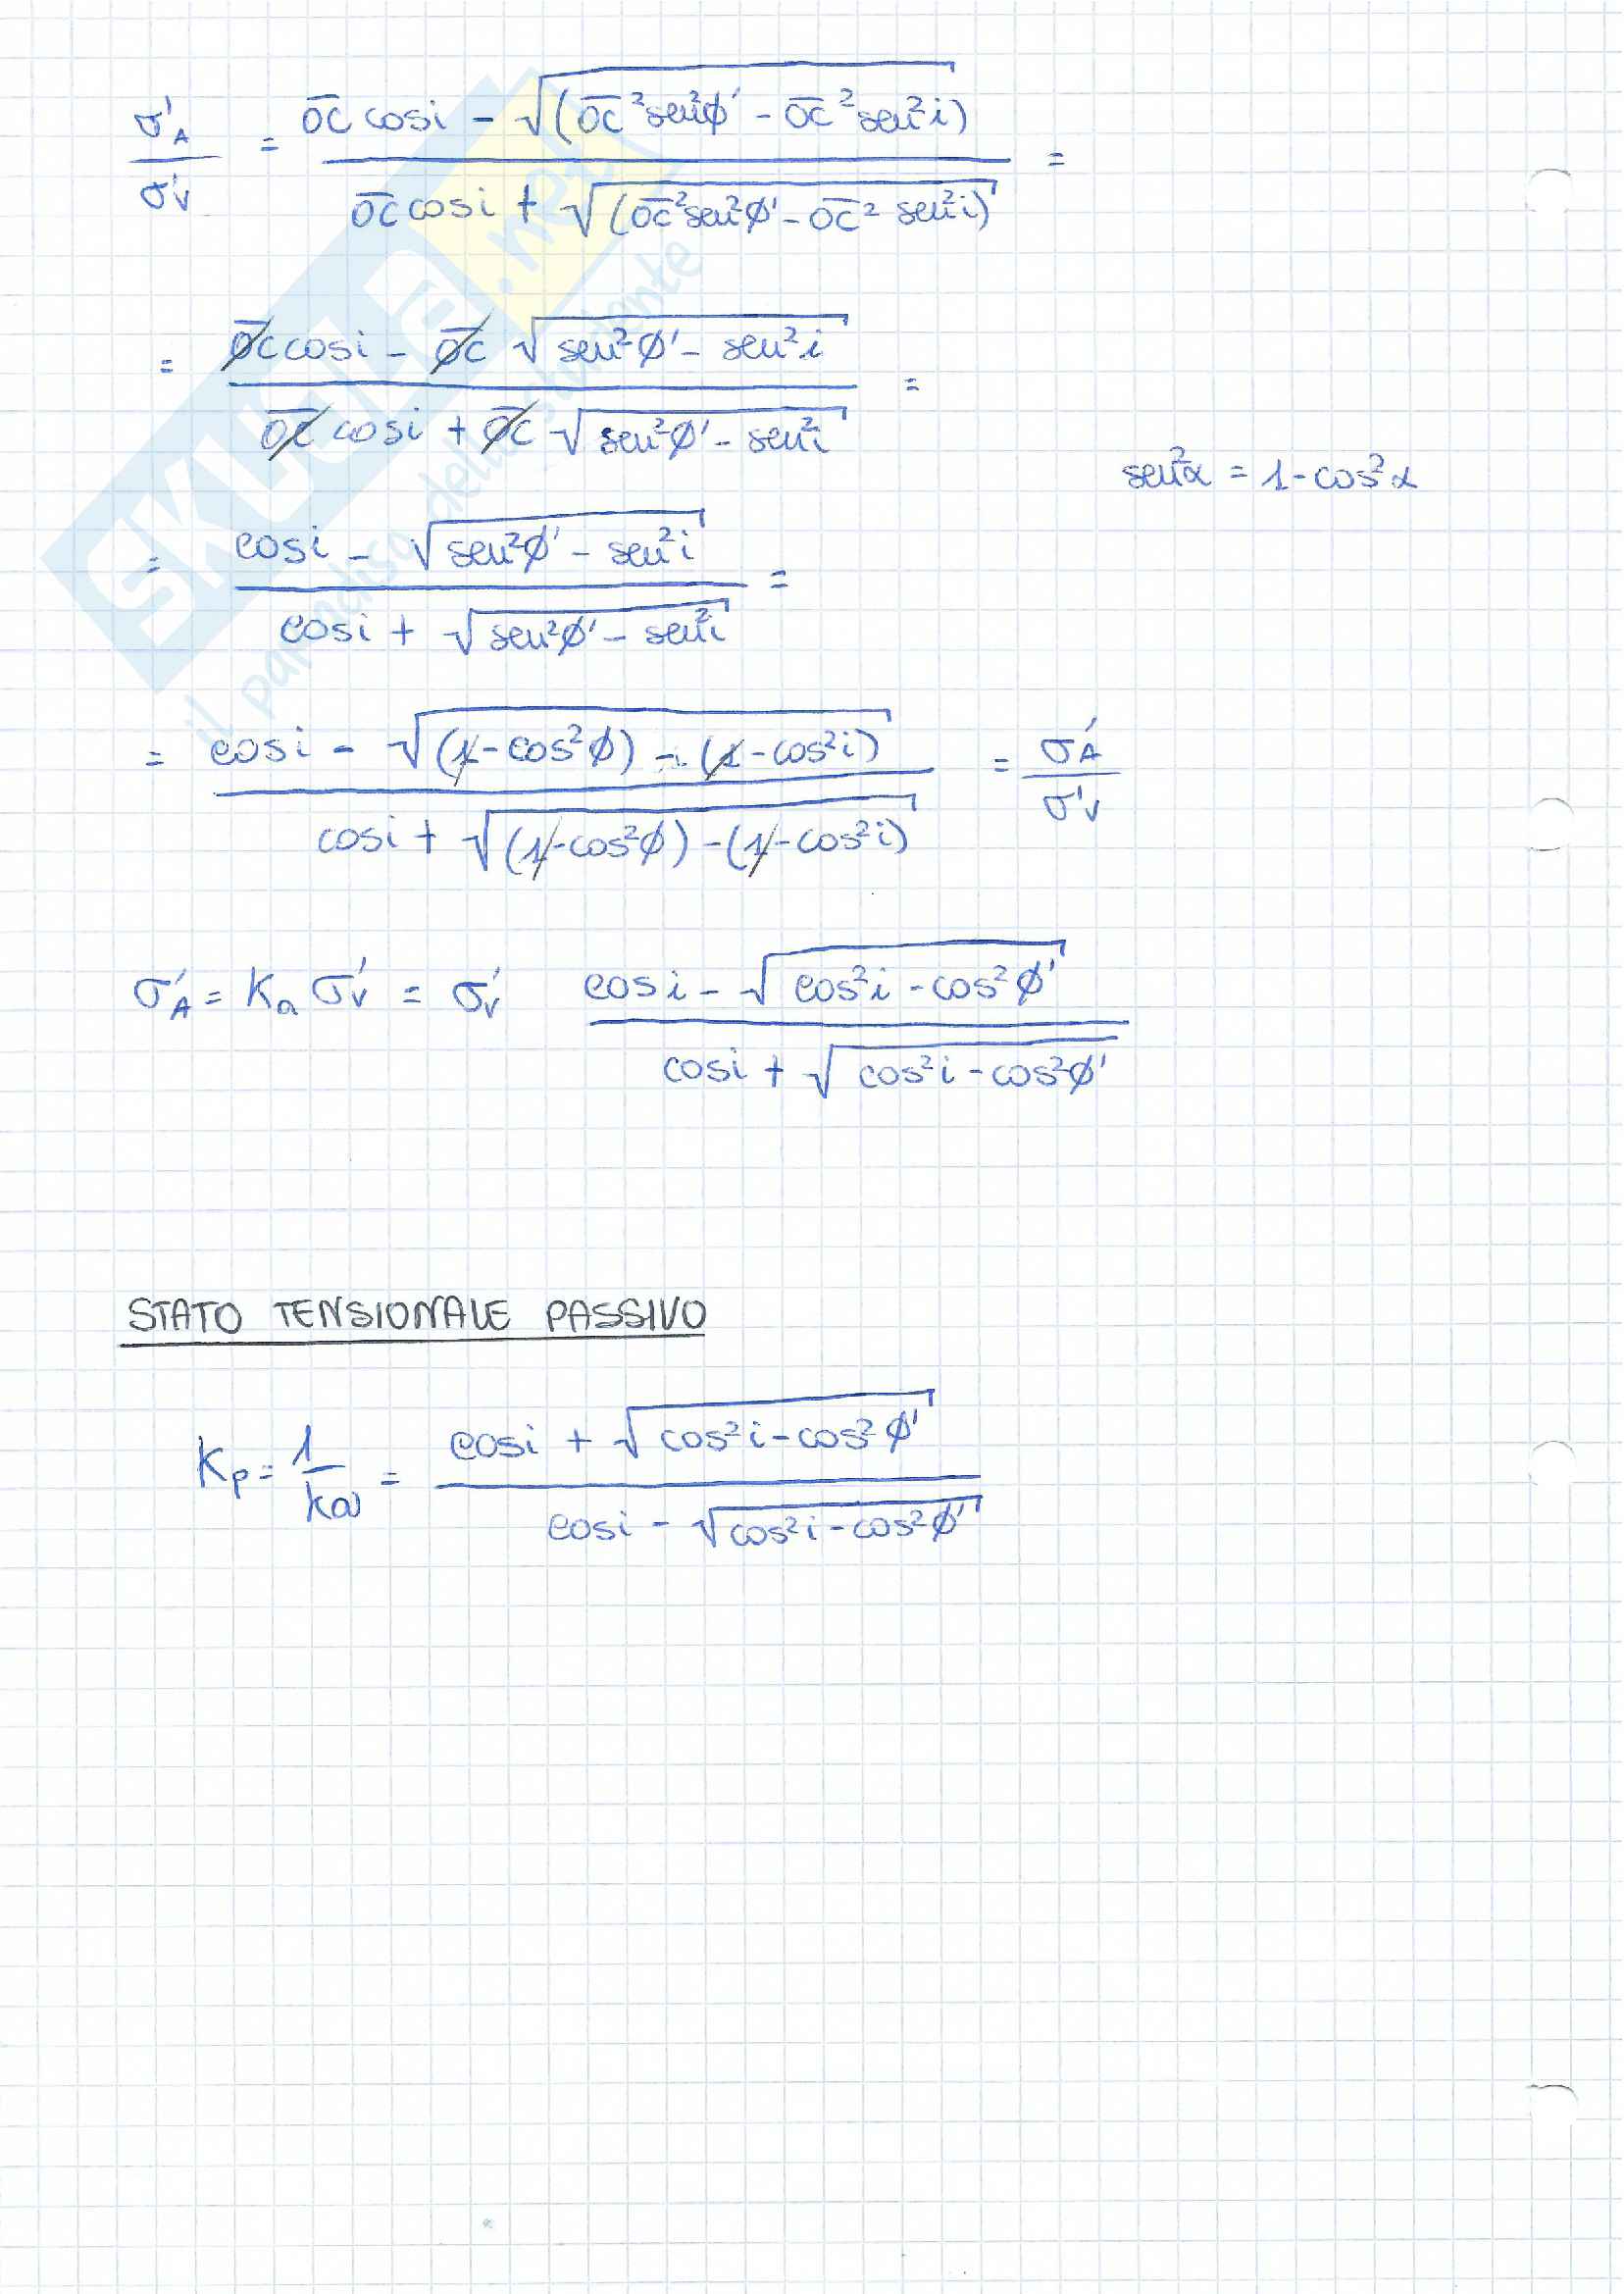 σ'A / σ'v = (OC cosi - √(OC² sen²φ' - OC² sen²i)) / (OC cosi + √(OC² sen²φ' - OC² sen²i)) =
= (OC cosi - OC √(sen²φ' - sen²i)) / (OC cosi + OC √(sen²φ' - sen²i)) =
sen²α = 1 - cos²α
= (cosi - √(sen²φ' - sen²i)) / (cosi + √(sen²φ' - sen²i)) =
= (cosi - √((1 - cos²φ) - (1 - cos²i))) / (cosi + √((1 - cos²φ) - (1 - cos²i))) = σ'A / σ'v
σ'A = Ka σ'v = σ'v (cosi - √(cos²i - cos²φ')) / (cosi + √(cos²i - cos²φ'))
STATO TENSIONALE PASSIVO
Kp = 1 / ka = (cosi + √(cos²i - cos²φ')) / (cosi - √(cos²i - cos²φ'))
SKUOLA.net
il paradiso dello studente